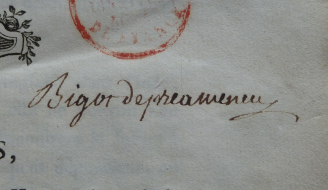 Bigot depreameneu
s,